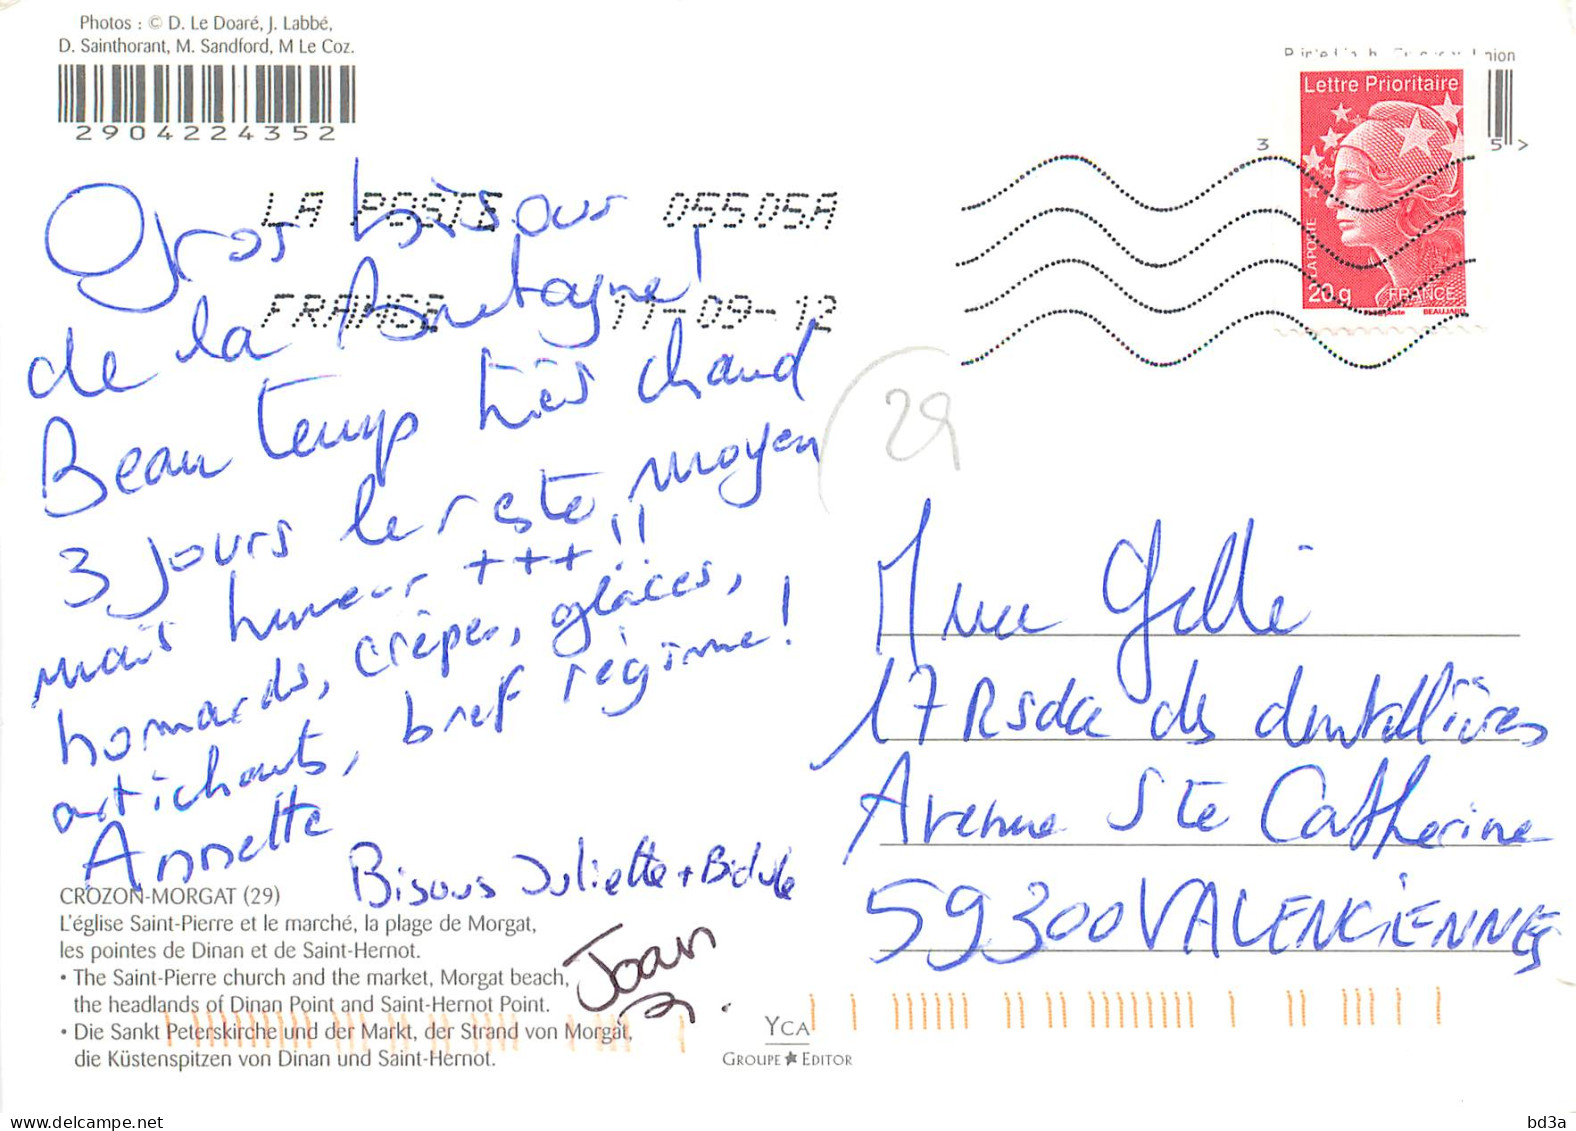 Photos : © D. Le Doaré, J. Labbé,
D. Sainthorant, M. Sandford, M Le Coz.
2904224352
Lettre Prioritaire
LA POSTE
20 g
FRANCE
BEAUJARD
3
5 >
LA POSTE 05505A
FRANCE 11-09-12
29
Gros bisous
de la Bretagne !
Beau temps très chand
3 jours le reste moyen
mais humeur +++ !!
homards, crêpes, glaces,
artichauts, bref régime !
Annette
Bisous Juliette + Bidule
Joan
Mme Gelle
17 Rsdce des dentellières
Avenue Ste Catherine
59300 VALENCIENNES
CROZON-MORGAT (29)
L'église Saint-Pierre et le marché, la plage de Morgat,
les pointes de Dinan et de Saint-Hernot.
• The Saint-Pierre church and the market, Morgat beach,
the headlands of Dinan Point and Saint-Hernot Point.
• Die Sankt Peterskirche und der Markt, der Strand von Morgat,
die Küstenspitzen von Dinan und Saint-Hernot.
YCA
GROUPE EDITOR
www.delcampe.net
bd3a